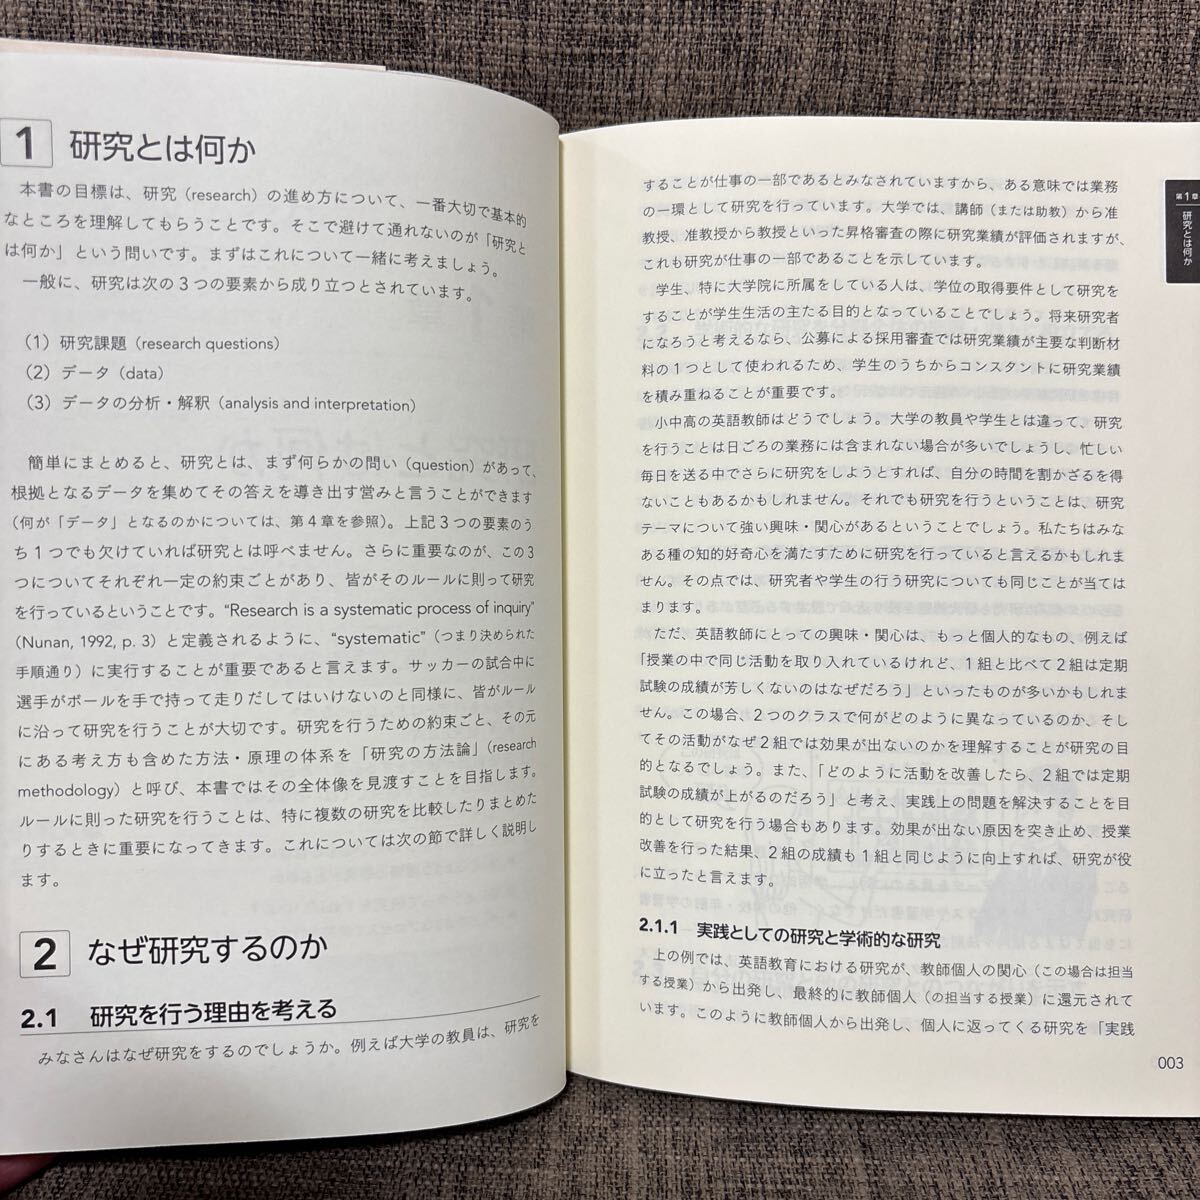 1 研究とは何か
本書の目標は、研究（research）の進め方について、一番大切で基本的
なところを理解してもらうことです。そこで避けて通れないのが「研究と
は何か」という問いです。まずはこれについて一緒に考えましょう。
一般に、研究は次の3つの要素から成り立つとされています。
（1）研究課題（research questions）
（2）データ（data）
（3）データの分析・解釈（analysis and interpretation）
簡単にまとめると、研究とは、まず何らかの問い（question）があって、
根拠となるデータを集めてその答えを導き出す営みと言うことができます
（何が「データ」となるのかについては、第4章を参照）。上記3つの要素のう
ち1つでも欠けていれば研究とは呼べません。さらに重要なのが、この3
つについてそれぞれ一定の約束ごとがあり、皆がそのルールに則って研究
を行っているということです。“Research is a systematic process of inquiry”
（Nunan, 1992, p. 3）と定義されるように、“systematic”（つまり決められた
手順通り）に実行することが重要であると言えます。サッカーの試合中に
選手がボールを手で持って走りだしてはいけないのと同様に、皆がルール
に沿って研究を行うことが大切です。研究を行うための約束ごと、その元
にある考え方も含めた方法・原理の体系を「研究の方法論」（research
methodology）と呼び、本書ではその全体像を見渡すことを目指します。
ルールに則った研究を行うことは、特に複数の研究を比較したりまとめた
りするときに重要になってきます。これについては次の節で詳しく説明し
ます。
2 なぜ研究するのか
2.1 研究を行う理由を考える
みなさんはなぜ研究をするのでしょうか。例えば大学の教員は、研究を
することが仕事の一部であるとみなされていますから、ある意味では業務
の一環として研究を行っています。大学では、講師（または助教）から准
教授、准教授から教授といった昇格審査の際に研究業績が評価されますが、
これも研究が仕事の一部であることを示しています。
学生、特に大学院に所属をしている人は、学位の取得要件として研究を
することが学生生活の主たる目的となっていることでしょう。将来研究者
になろうと考えるなら、公募による採用審査では研究業績が主要な判断材
料の1つとして使われるため、学生のうちからコンスタントに研究業績
を積み重ねることが重要です。
小中高の英語教師はどうでしょう。大学の教員や学生とは違って、研究
を行うことは日ごろの業務には含まれない場合が多いでしょうし、忙しい
毎日を送る中でさらに研究をしようとすれば、自分の時間を割かざるを得
ないこともあるかもしれません。それでも研究を行うということは、研究
テーマについて強い興味・関心があるということでしょう。私たちはみな
ある種の知的好奇心を満たすために研究を行っていると言えるかもしれま
せん。その点では、研究者や学生の行う研究についても同じことが当ては
まります。
ただ、英語教師にとっての興味・関心は、もっと個人的なもの、例えば
「授業の中で同じ活動を取り入れているけれど、1組と比べて2組は定期
試験の成績が芳しくないのはなぜだろう」といったものが多いかもしれま
せん。この場合、2つのクラスで何がどのように異なっているのか、そし
てその活動がなぜ2組では効果が出ないのかを理解することが研究の目
的となるでしょう。また、「どのように活動を改善したら、2組では定期
試験の成績が上がるのだろう」と考え、実践上の問題を解決することを目
的として研究を行う場合もあります。効果が出ない原因を突き止め、授業
改善を行った結果、2組の成績も1組と同じように向上すれば、研究が役
に立ったと言えます。
2.1.1 実践としての研究と学術的な研究
上の例では、英語教育における研究が、教師個人の関心（この場合は担当
する授業）から出発し、最終的に教師個人（の担当する授業）に還元されて
います。このように教師個人から出発し、個人に返ってくる研究を「実践
003
第1章
研究とは何か